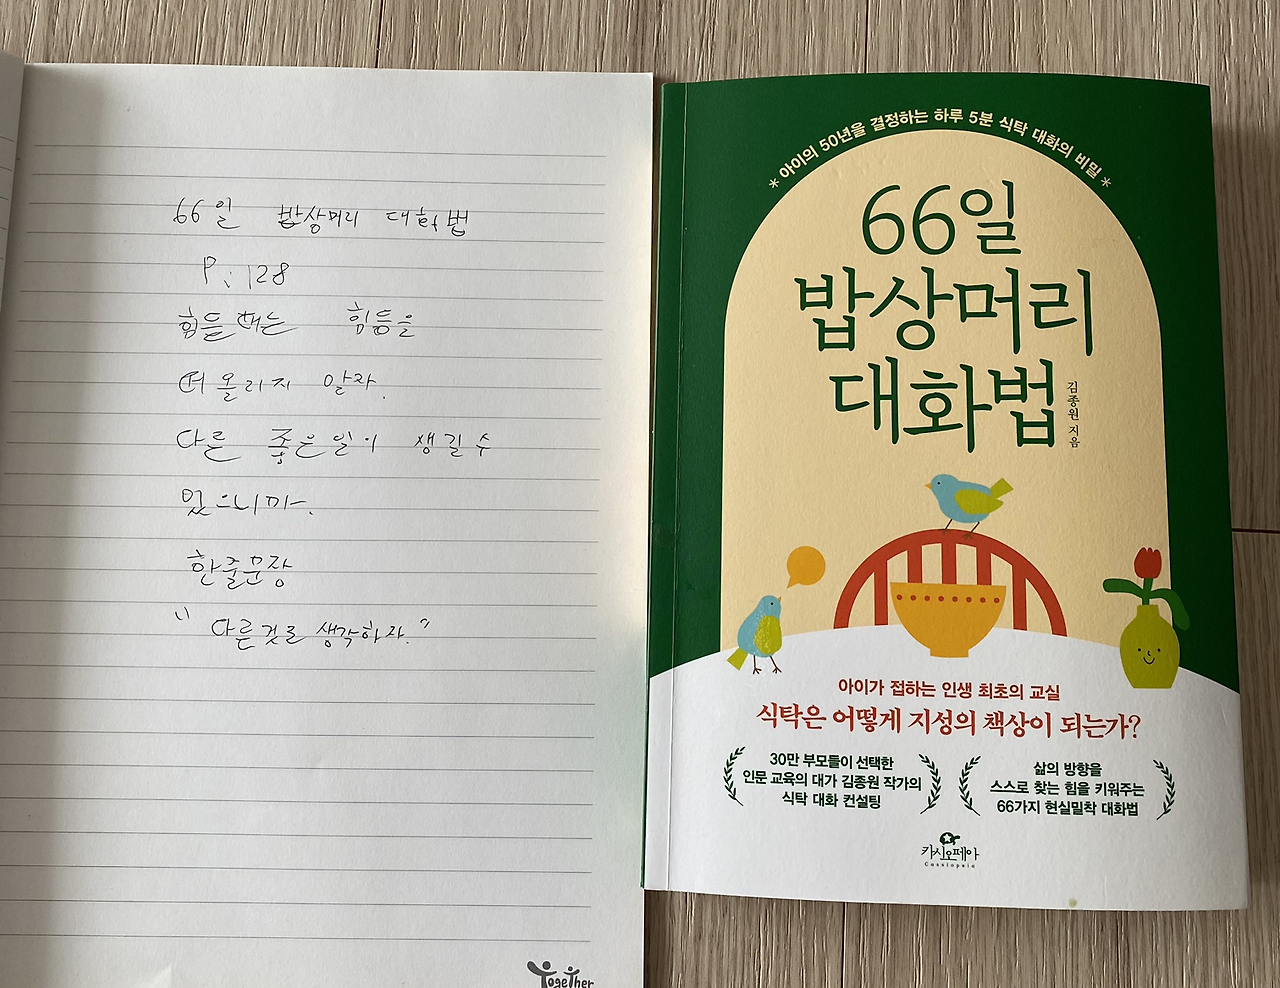 66일 밥상머리 대화법
P. 128
힘들때는 힘듬을
떠올리지 말자.
다른 좋은일이 생길수
있으니까.
한줄문장
"다른것로 생각하자."
TogeTher
* 아이의 50년을 결정하는 하루 5분 식탁 대화의 비밀 *
66일
밥상머리
대화법
김종원 지음
아이가 접하는 인생 최초의 교실
식탁은 어떻게 지성의 책상이 되는가?
30만 부모들이 선택한
인문 교육의 대가 김종원 작가의
식탁 대화 컨설팅
삶의 방향을
스스로 찾는 힘을 키워주는
66가지 현실밀착 대화법
카시오페아
Cassiopeia